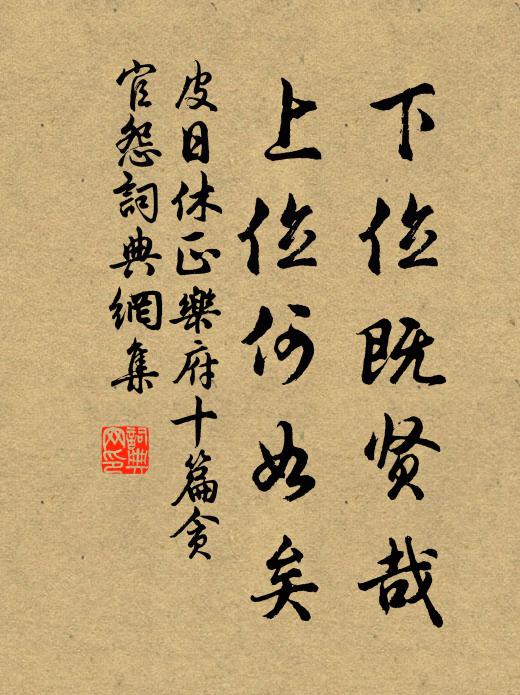 下位既贤哉
上位何如矣
皮日休正樂府十篇貪
官怨詞典網集
詞典
网印